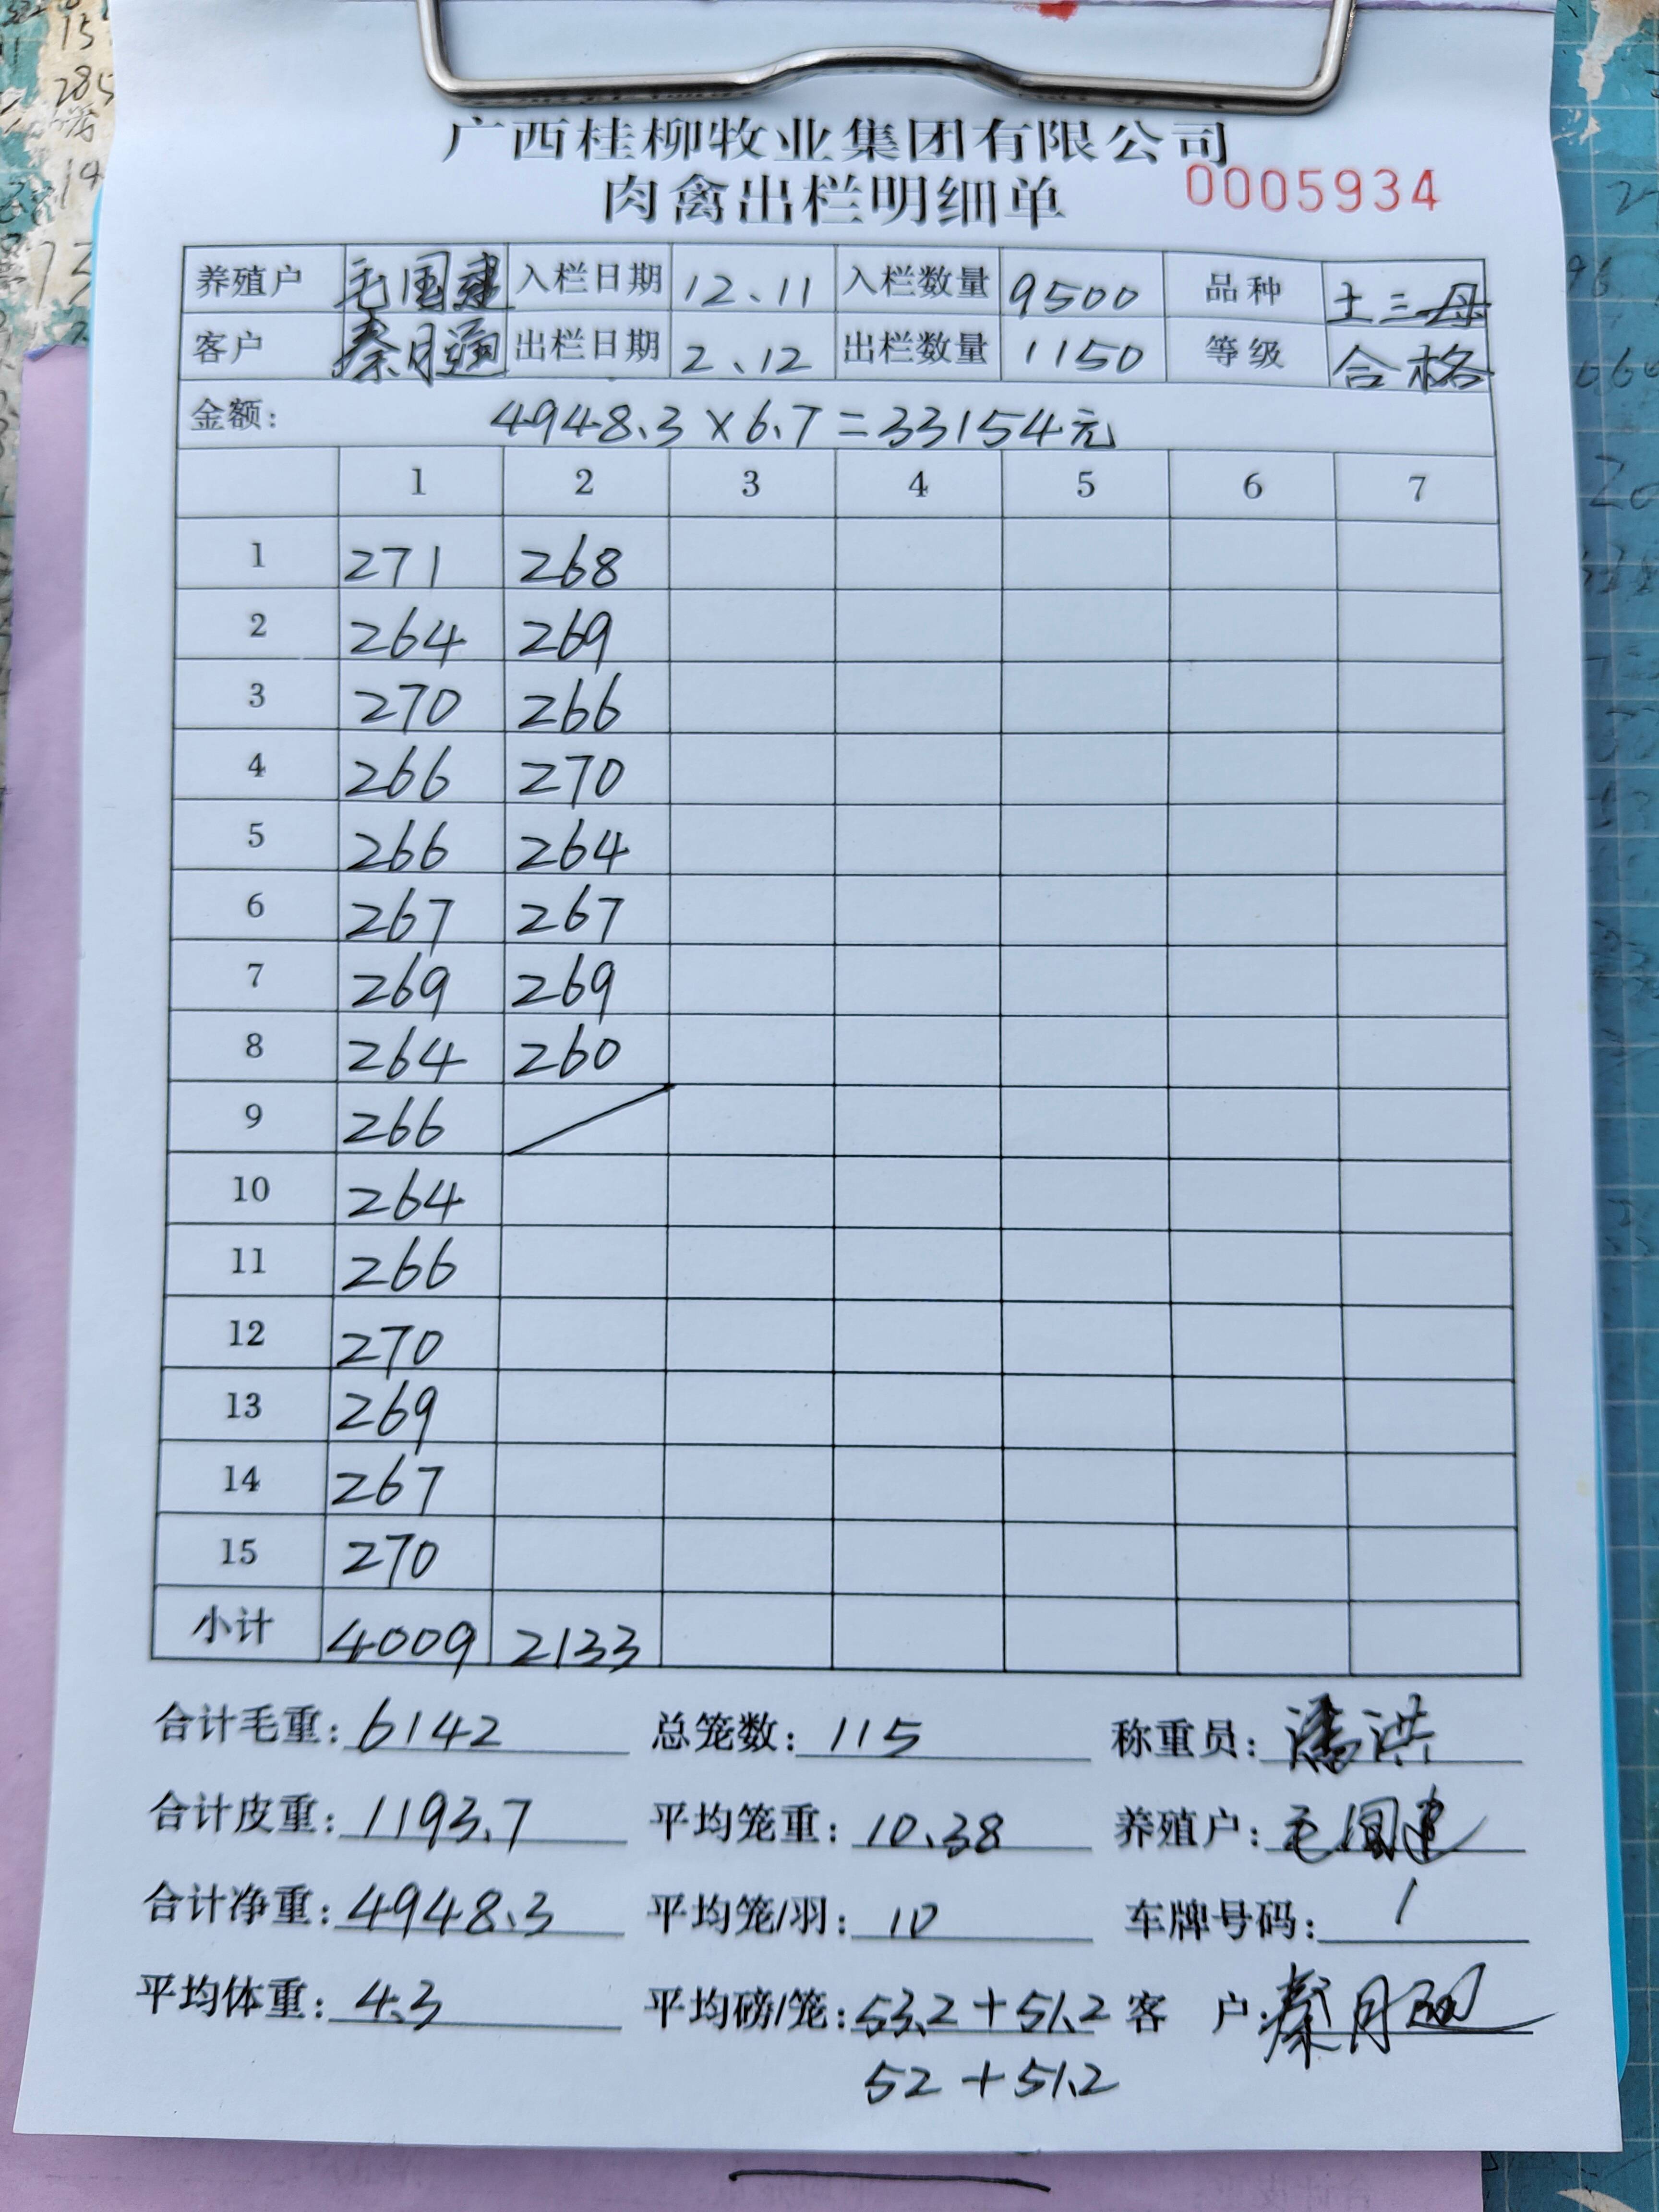 广西桂柳牧业集团有限公司
肉禽出栏明细单 0005934
养殖户 毛国建 入栏日期 12.11 入栏数量 9500 品种 土三母
客户 秦月 出栏日期 2.12 出栏数量 1150 等级 合格
金额: 4948.3×6.7=33154元
1 2 3 4 5 6 7
1 271 268
2 264 269
3 270 266
4 266 270
5 266 264
6 267 267
7 269 269
8 264 260
9 266
10 264
11 266
12 270
13 269
14 267
15 270
小计 4009 2133
合计毛重: 6142 总笼数: 115 称重员: 潘洪
合计皮重: 1193.7 平均笼重: 10.38 养殖户: 毛国建
合计净重: 4948.3 平均笼/羽: 10 车牌号码: /
平均体重: 4.3 平均磅/笼: 53.2+51.2 客 户: 秦月
52+51.2